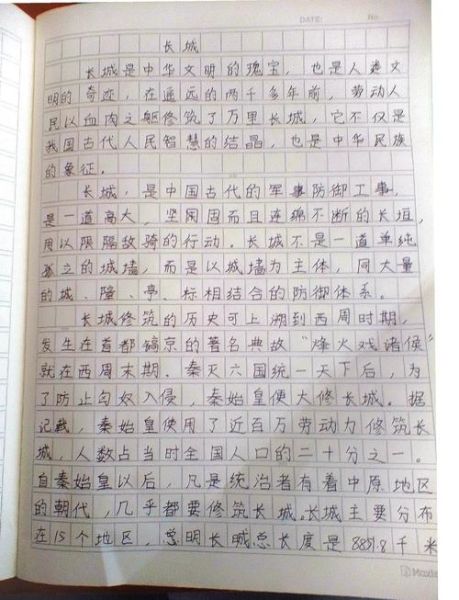 DATE: No.
长城
长城是中华文明的瑰宝，也是人类文
明的奇迹，在遥远的两千多年前，劳动人
民以血肉之躯修筑了万里长城，它不仅是
我国古代人民智慧的结晶，也是中华民族
的象征。
长城，是中国古代的军事防御工事，
是一道高大、坚固而且连绵不断的长垣，
用以限隔敌骑的行动。长城不是一道单纯
孤立的城墙，而是以城墙为主体，同大量
的城、障、亭、标相结合的防御体系。
长城修筑的历史可上溯到西周时期，
发生在首都镐京的著名典故“烽火戏诸侯”
就在西周末期。秦灭六国统一天下后，为
了防止匈奴入侵，秦始皇便大修长城。据
记载，秦始皇使用了近百万劳动力修筑长
城，人数占当时全国人口的二十分之一。
自秦始皇以后，凡是统治者有着中原地区
的朝代，几乎都要修筑长城。长城主要分布
在15个地区，总明长城总长度是8851.8千米